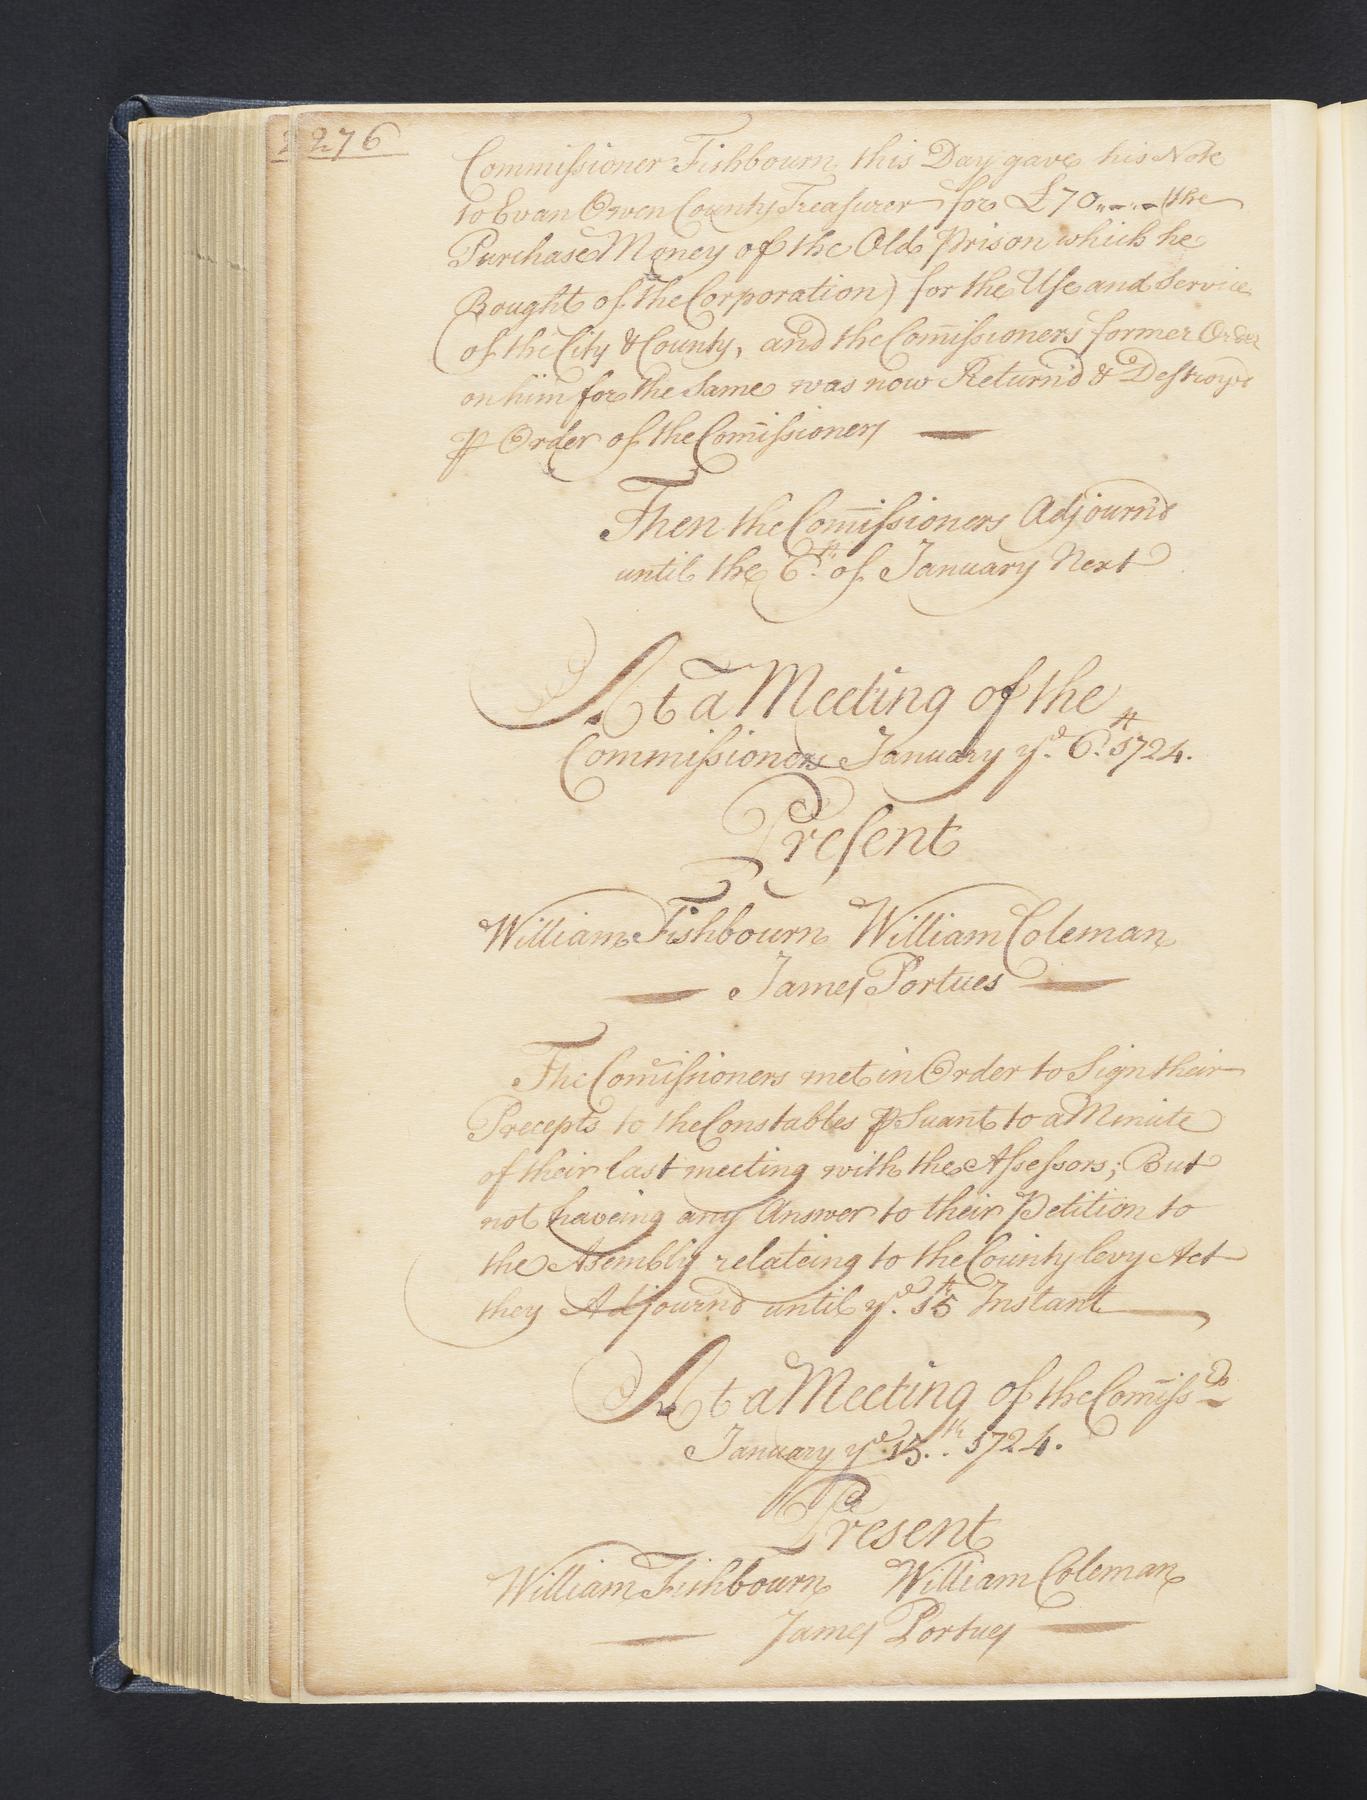 276
Commissioner Fishbourn this Day gave his Note
to Evan Owen County Treasurer for £70„-„- (the
Purchase Money of the Old Prison which he
Bought of the Corporation) for the Use and Service
of the City & County, and the Com̄issioners former Order
on him for the Same was now Return'd & Destroy'd
⅌ Order of the Com̄issioners
Then the Com̄issioners Adjourn'd
until the 6th. of January Next
At a Meeting of the
Commissioners January ye. 6th. 1724.
Present
William Fishbourn William Coleman
James Portues
The Com̄issioners met in Order to Sign their
Precepts to the Constables ⅌Suant to a Minute
of their last meeting with the Assessors; But
not haveing any Answer to their Petition to
the Asembly relateing to the County levy Act
they Adjournd until ye. 15th Instant
At a Meeting of the Com̄issrs
January ye 15th. 1724.
Present
William Fishbourn William Coleman
James Portues